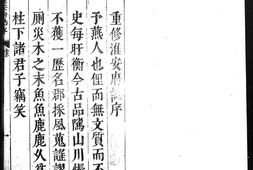 重修淮安府志序
予燕人也俚而無文質而不
史每盱衡今古品隲山川慚
不獲一歷名郡採風蒐謡謬
厠災木之末魚魚鹿鹿久為
柱下諸君子竊笑